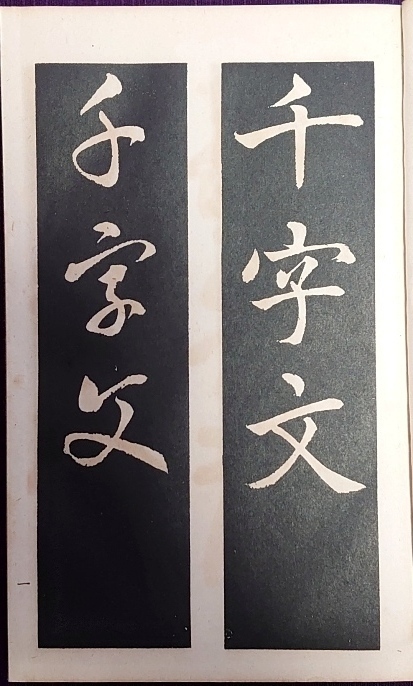 千字文
千字文
一